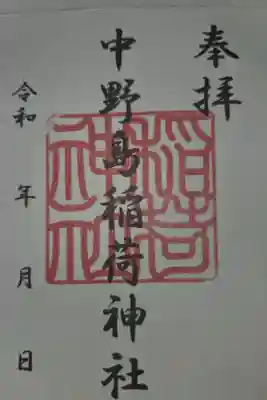 奉拝
中野島稲荷神社
稲荷神社
令和 年 月 日